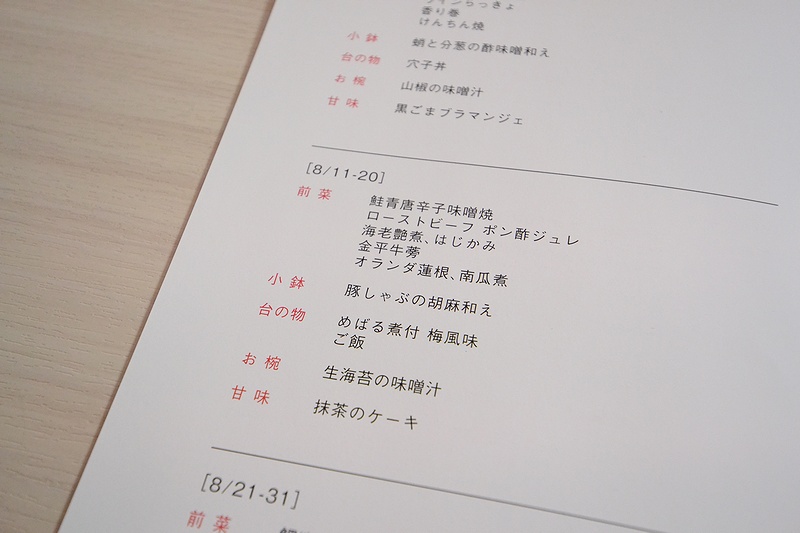 ワインらっきょ
香り巻
けんちん焼
小 鉢 蛸と分葱の酢味噌和え
台の物 穴子丼
お 椀 山椒の味噌汁
甘 味 黒ごまブラマンジェ
[8/11-20]
前 菜 鮭青唐辛子味噌焼
ローストビーフ ポン酢ジュレ
海老艶煮、はじかみ
金平牛蒡
オランダ蓮根、南瓜煮
小 鉢 豚しゃぶの胡麻和え
台の物 めばる煮付 梅風味
ご飯
お 椀 生海苔の味噌汁
甘 味 抹茶のケーキ
[8/21-31]
前 菜